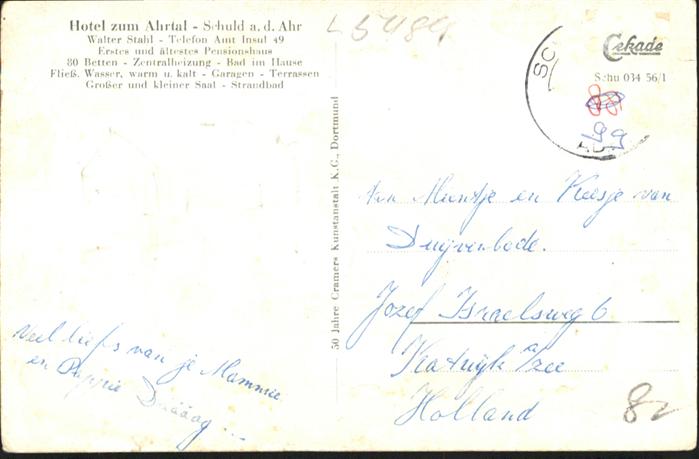 Hotel zum Ahrtal - Schuld a. d. Ahr
Walter Stahl - Telefon Amt Insul 49
Erstes und ältestes Pensionshaus
80 Betten - Zentralheizung - Bad im Hause
Fließ. Wasser, warm u. kalt - Garagen - Terrassen
Großer und kleiner Saal - Strandbad
L 5484
Cekade
Schu 034 56/1
99
50 Jahre Cramers Kunstanstalt K.G., Dortmund
Muntje en Keesje van
Duijvenbode.
Jozef Israelsweg 6
Katwijk a/zee
Holland
82
Veel liefs van je Mammie
en Pappie Dááág...